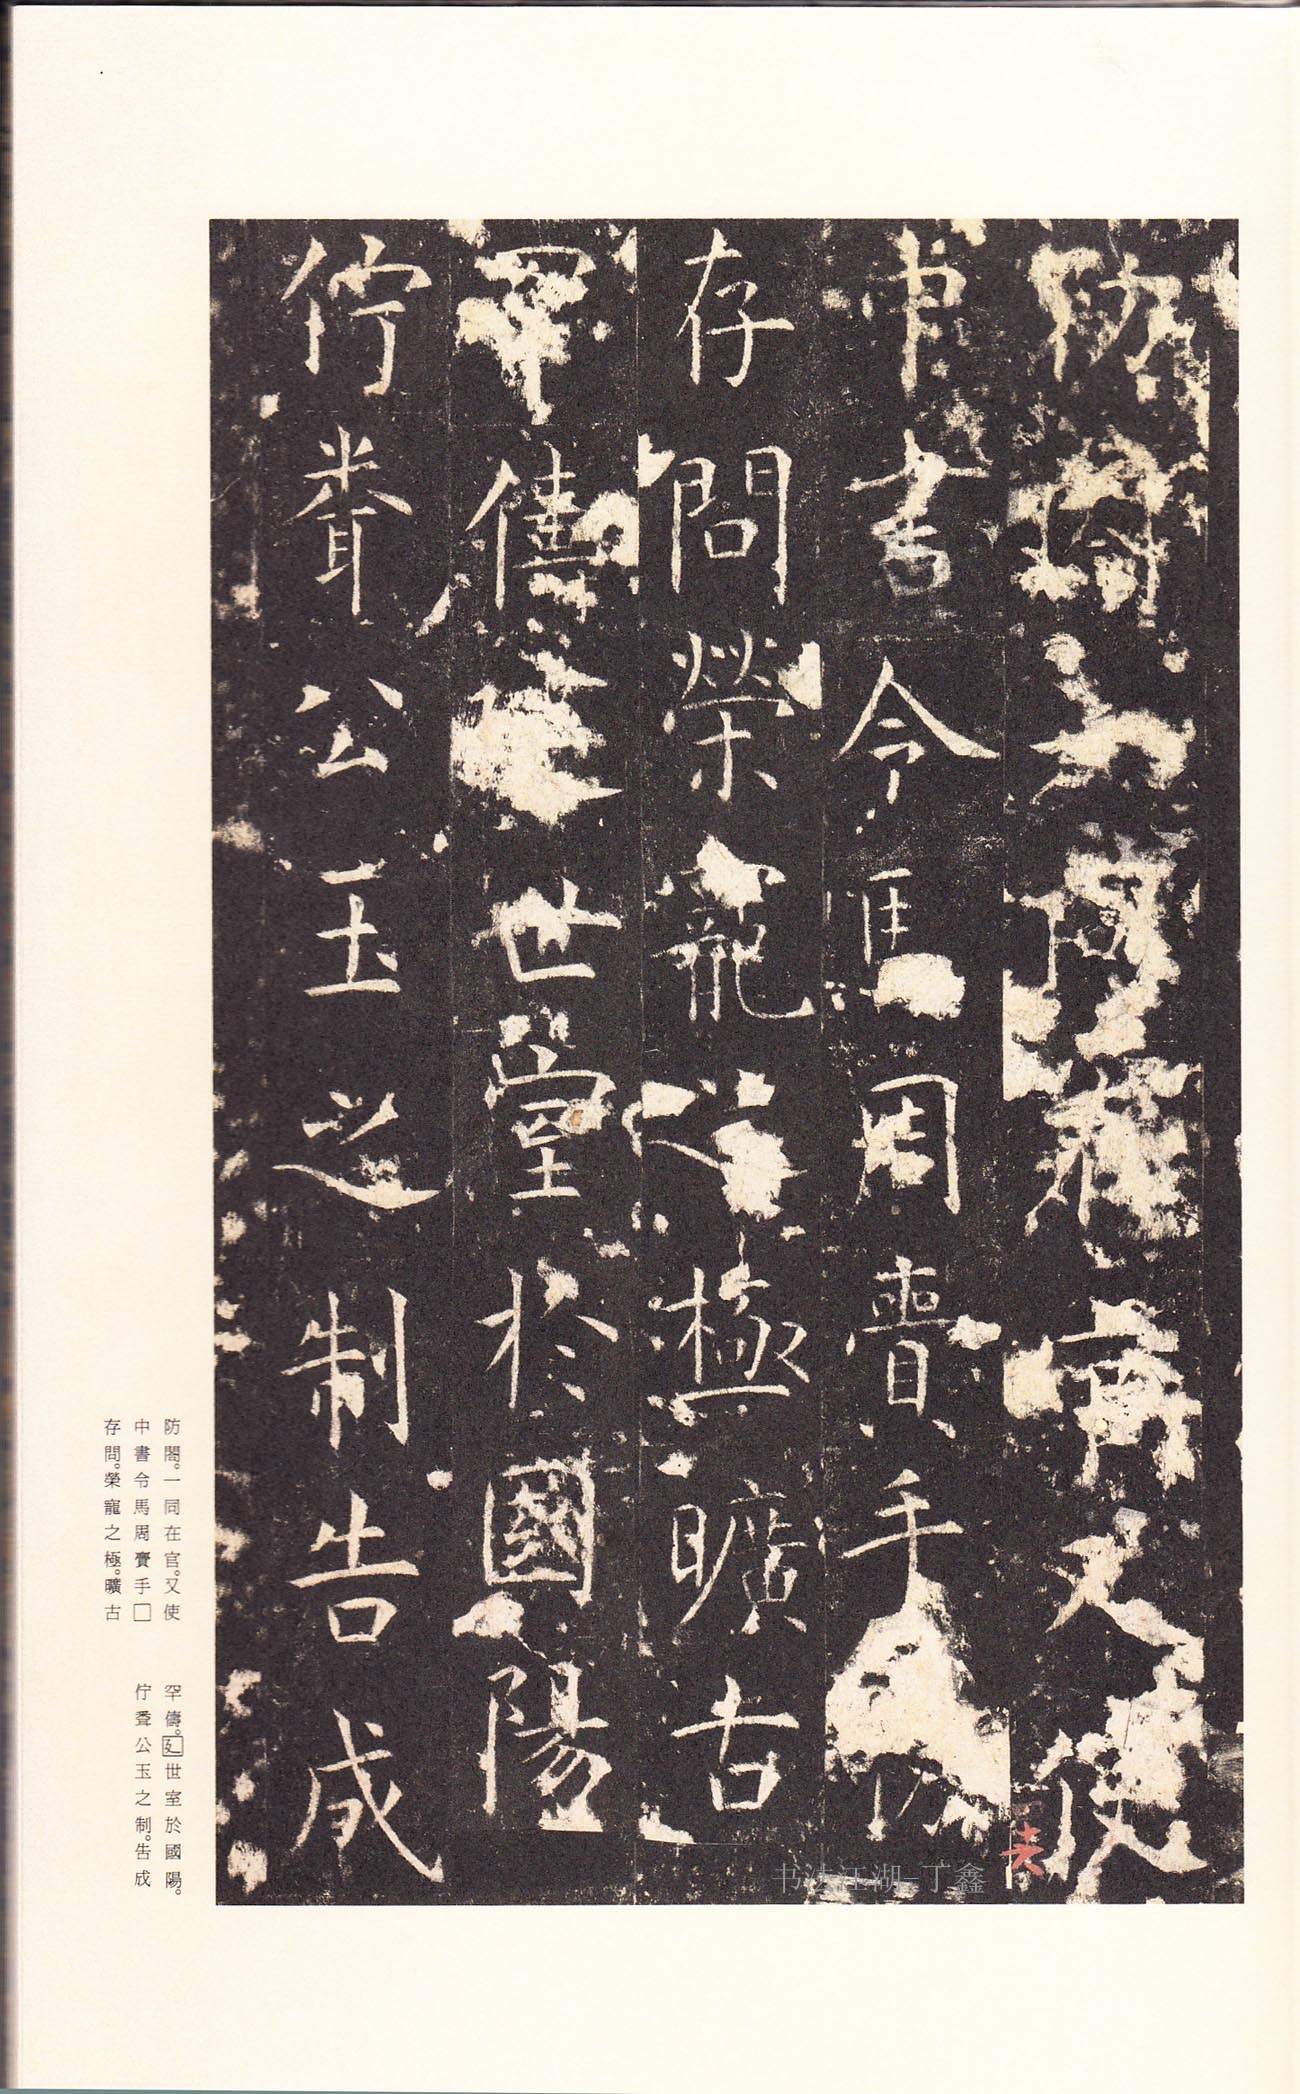 防閤一同在官又使
中書令馬周賷手
存問榮寵之極曠古
罕儔世室於國陽
佇聋公玉之制告成
防閤。一同在官。又使
中書令馬周賷手□
存問。榮寵之極。曠古
罕儔。廴世室於國陽。
佇聋公玉之制。告成
书法江湖-丁鑫